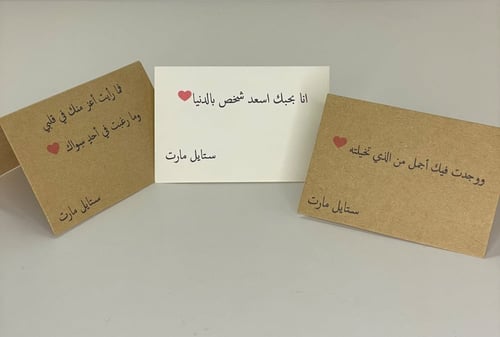 انا بحبك اسعد شخص بالدنيا
ستايل مارت
فما رأيت أعز منك في قلبي
وما رغبت في أحدٍ سواك
ستايل مارت
ووجدت فيك أجمل من الذي تخيلته
ستايل مارت